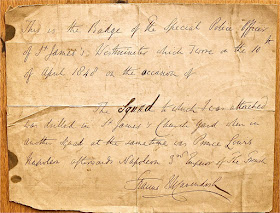 This is the Badge of the Special Police Officer
of St James's, Westminster which I wore on the 10
of April 1848 on the occasion of
The Squad to which I was attached
was drilled in St James's Church Yard when in
another squad at the same time was Prince Louis
Napoleon afterwards Napoleon 3rd Emperor of the French